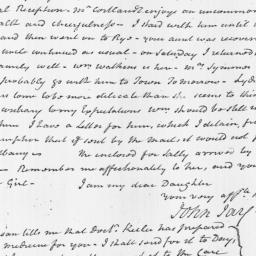 al Reception. Mr. Cortlandt enjoys an uncommon
alth and chearfulness — I staid with him until
and then went on to Rye — your aunt was recover
uncle continued as usual — on Saturday I returned
amily well — Wm. Watkins is here — Mr. Symmes
probably go with him to Town Tomorrow —
us come to be more delicate than she seems to this
Contrary to my Expectations Wm. should be still
him I have a Letter for him, which I detain, fr
umption that if sent by the mail it would not
Albany — The enclosed for Sally arrived by
— Remember me affectionately to her, and you
Girl — I am my dear Daughter
Your very affte.
John Jay
son tells me that Doctr. Keeler has prepared
medicine for you — I shall send for it to Day,
to the Care